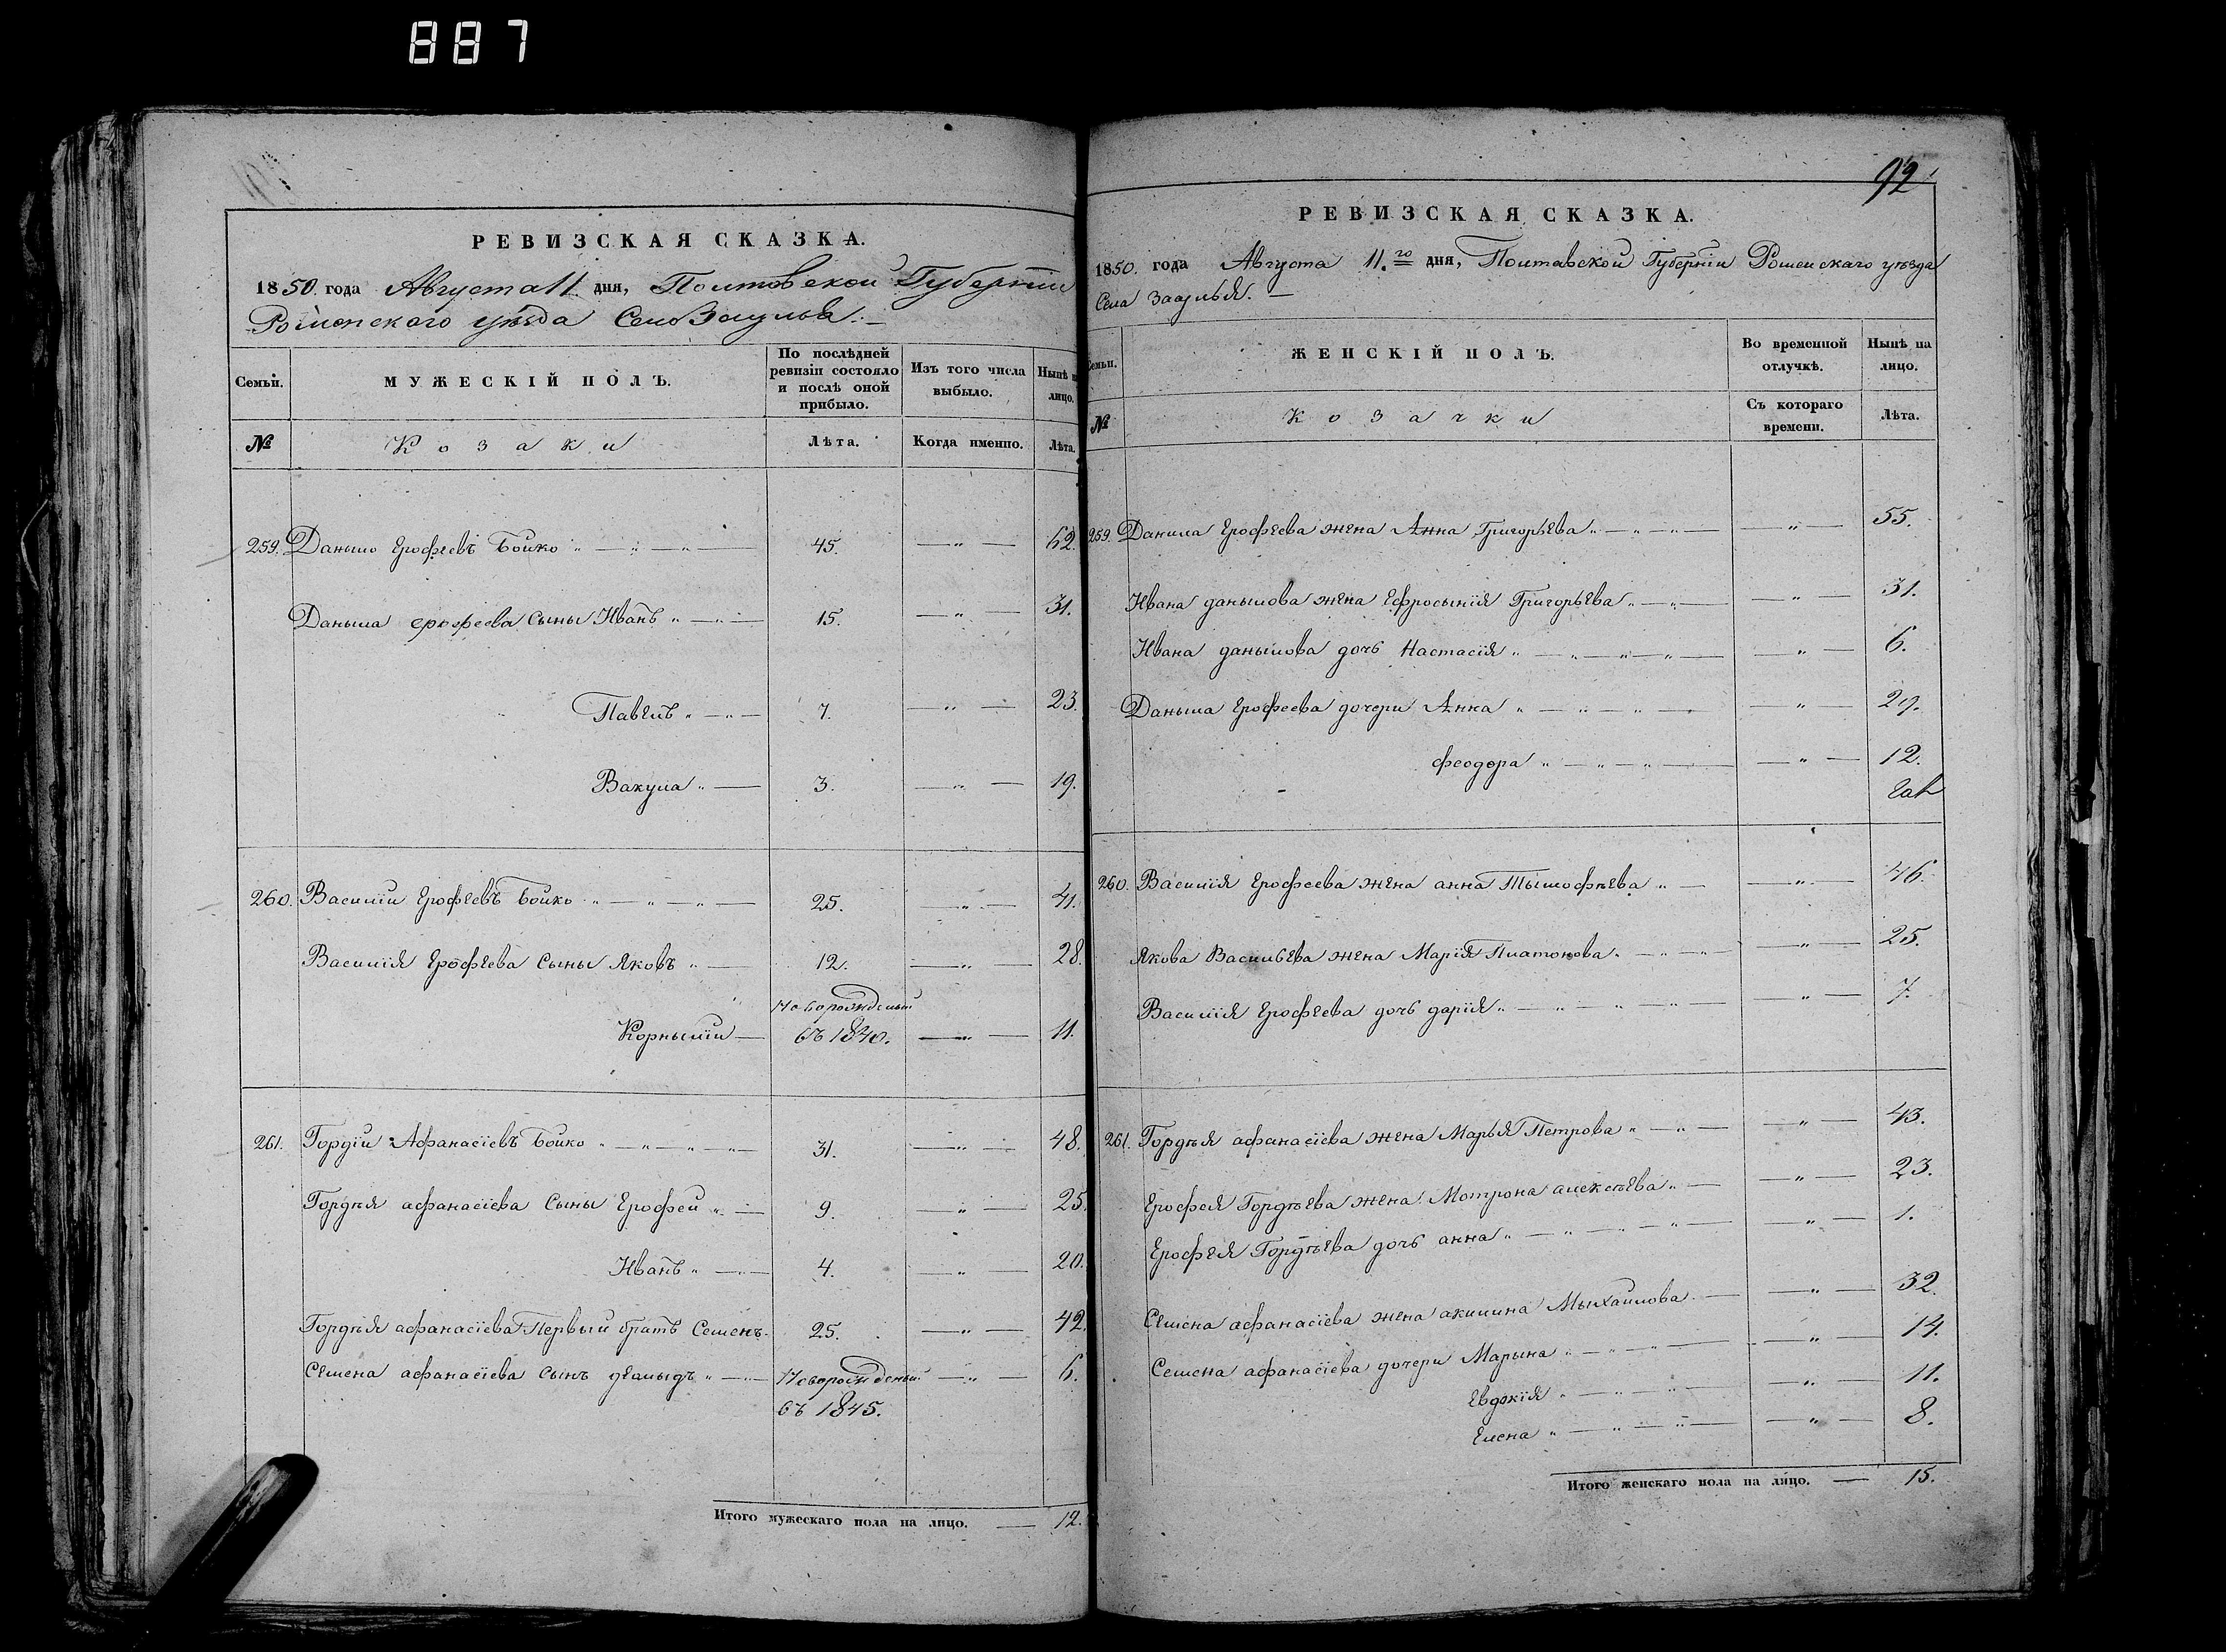 887
РЕВИЗСКАЯ СКАЗКА.
1850. года Августа 11 дня, Полтавской Губерніи
Роменского уѣзда Село Засулья. —
Семьи. МУЖЕСКІЙ ПОЛЪ. По послѣдней ревизіи состояло и послѣ оной прибыло. Изъ того числа выбыло. Нынѣ на лицо.
№ Козаки Лѣта. Когда именно. Лѣта.
259. Даныло Ерофеевъ Бойко „ — „ — „ — 45. — „ — 62.
Даныла ерофеева Сыны Иванъ „ — „ — 15. — „ — 31.
Павелъ „ — „ — 7. — „ — 23.
Вакула „ — 3. — „ — 19.
260. Василій Ерофеевъ Бойко „ — „ — „ — 25. — „ — 41.
Василія Ерофеева Сыны Яковъ „ — 12. — „ — 28.
Новорожденый
Корнылій — въ 1840. — „ — 11.
261. Гордій Афанасіевъ Бойко „ — „ — „ — 31. — „ — 48.
Гордѣя афанасіева Сыны Ерофей „ — 9. — „ — 25.
Иванъ „ — „ — 4. — „ — 20.
Гордѣя афанасіева Первый братъ Семенъ. 25. — „ — 42.
Семена афанасіева сынъ демыдъ „ — „ — Новорожденый — „ — 6.
въ 1845.
Итого мужескаго пола на лицо. — 12.
92
РЕВИЗСКАЯ СКАЗКА.
1850. года Августа 11.го дня, Полтавской Губерніи Роменскаго уѣзда
Села Засулья. —
Семьи. ЖЕНСКІЙ ПОЛЪ. Во временной отлучкѣ. Нынѣ на лицо.
№ Козачки Съ котораго времени. Лѣта.
259. Данила Ерофеева жена Анна Григорьева „ — „ — „ — — „ — 55.
Ивана данылова жена Ефросынія Григорьева „ — „ — — „ — 31.
Ивана данылова дочь Настасія „ — „ — „ — „ — — „ — 6.
Даныла Ерофеева дочери Анна „ — „ — „ — — „ 29.
феодора „ — „ — „ — — „ — 12.
260. Василія Ерофеева жена анна Тымофѣева „ — — „ — 46.
Якова Васильева жена Марія Платонова. „ — „ — „ — — „ — 25.
Василія Ерофеева дочь дарія „ — „ — „ — „ — — „ — 7.
261. Гордѣя афанасіева жена Марья Петрова „ — „ — — „ — 43.
Ерофея Гордѣева жена Мотрона алексѣева „ — — „ — 23.
Ерофея Гордѣева дочь анна „ — „ — „ — „ — — „ — 1.
Семена афанасіева жена акилина Мыхайлова. — — „ — 32.
Семена афанасіева дочери Марына „ — „ — „ — — „ — 14.
Евдокія „ — „ — „ — — „ — 11.
Елена „ — „ — „ — — „ — 8.
Итого женскаго пола на лицо. — 15.